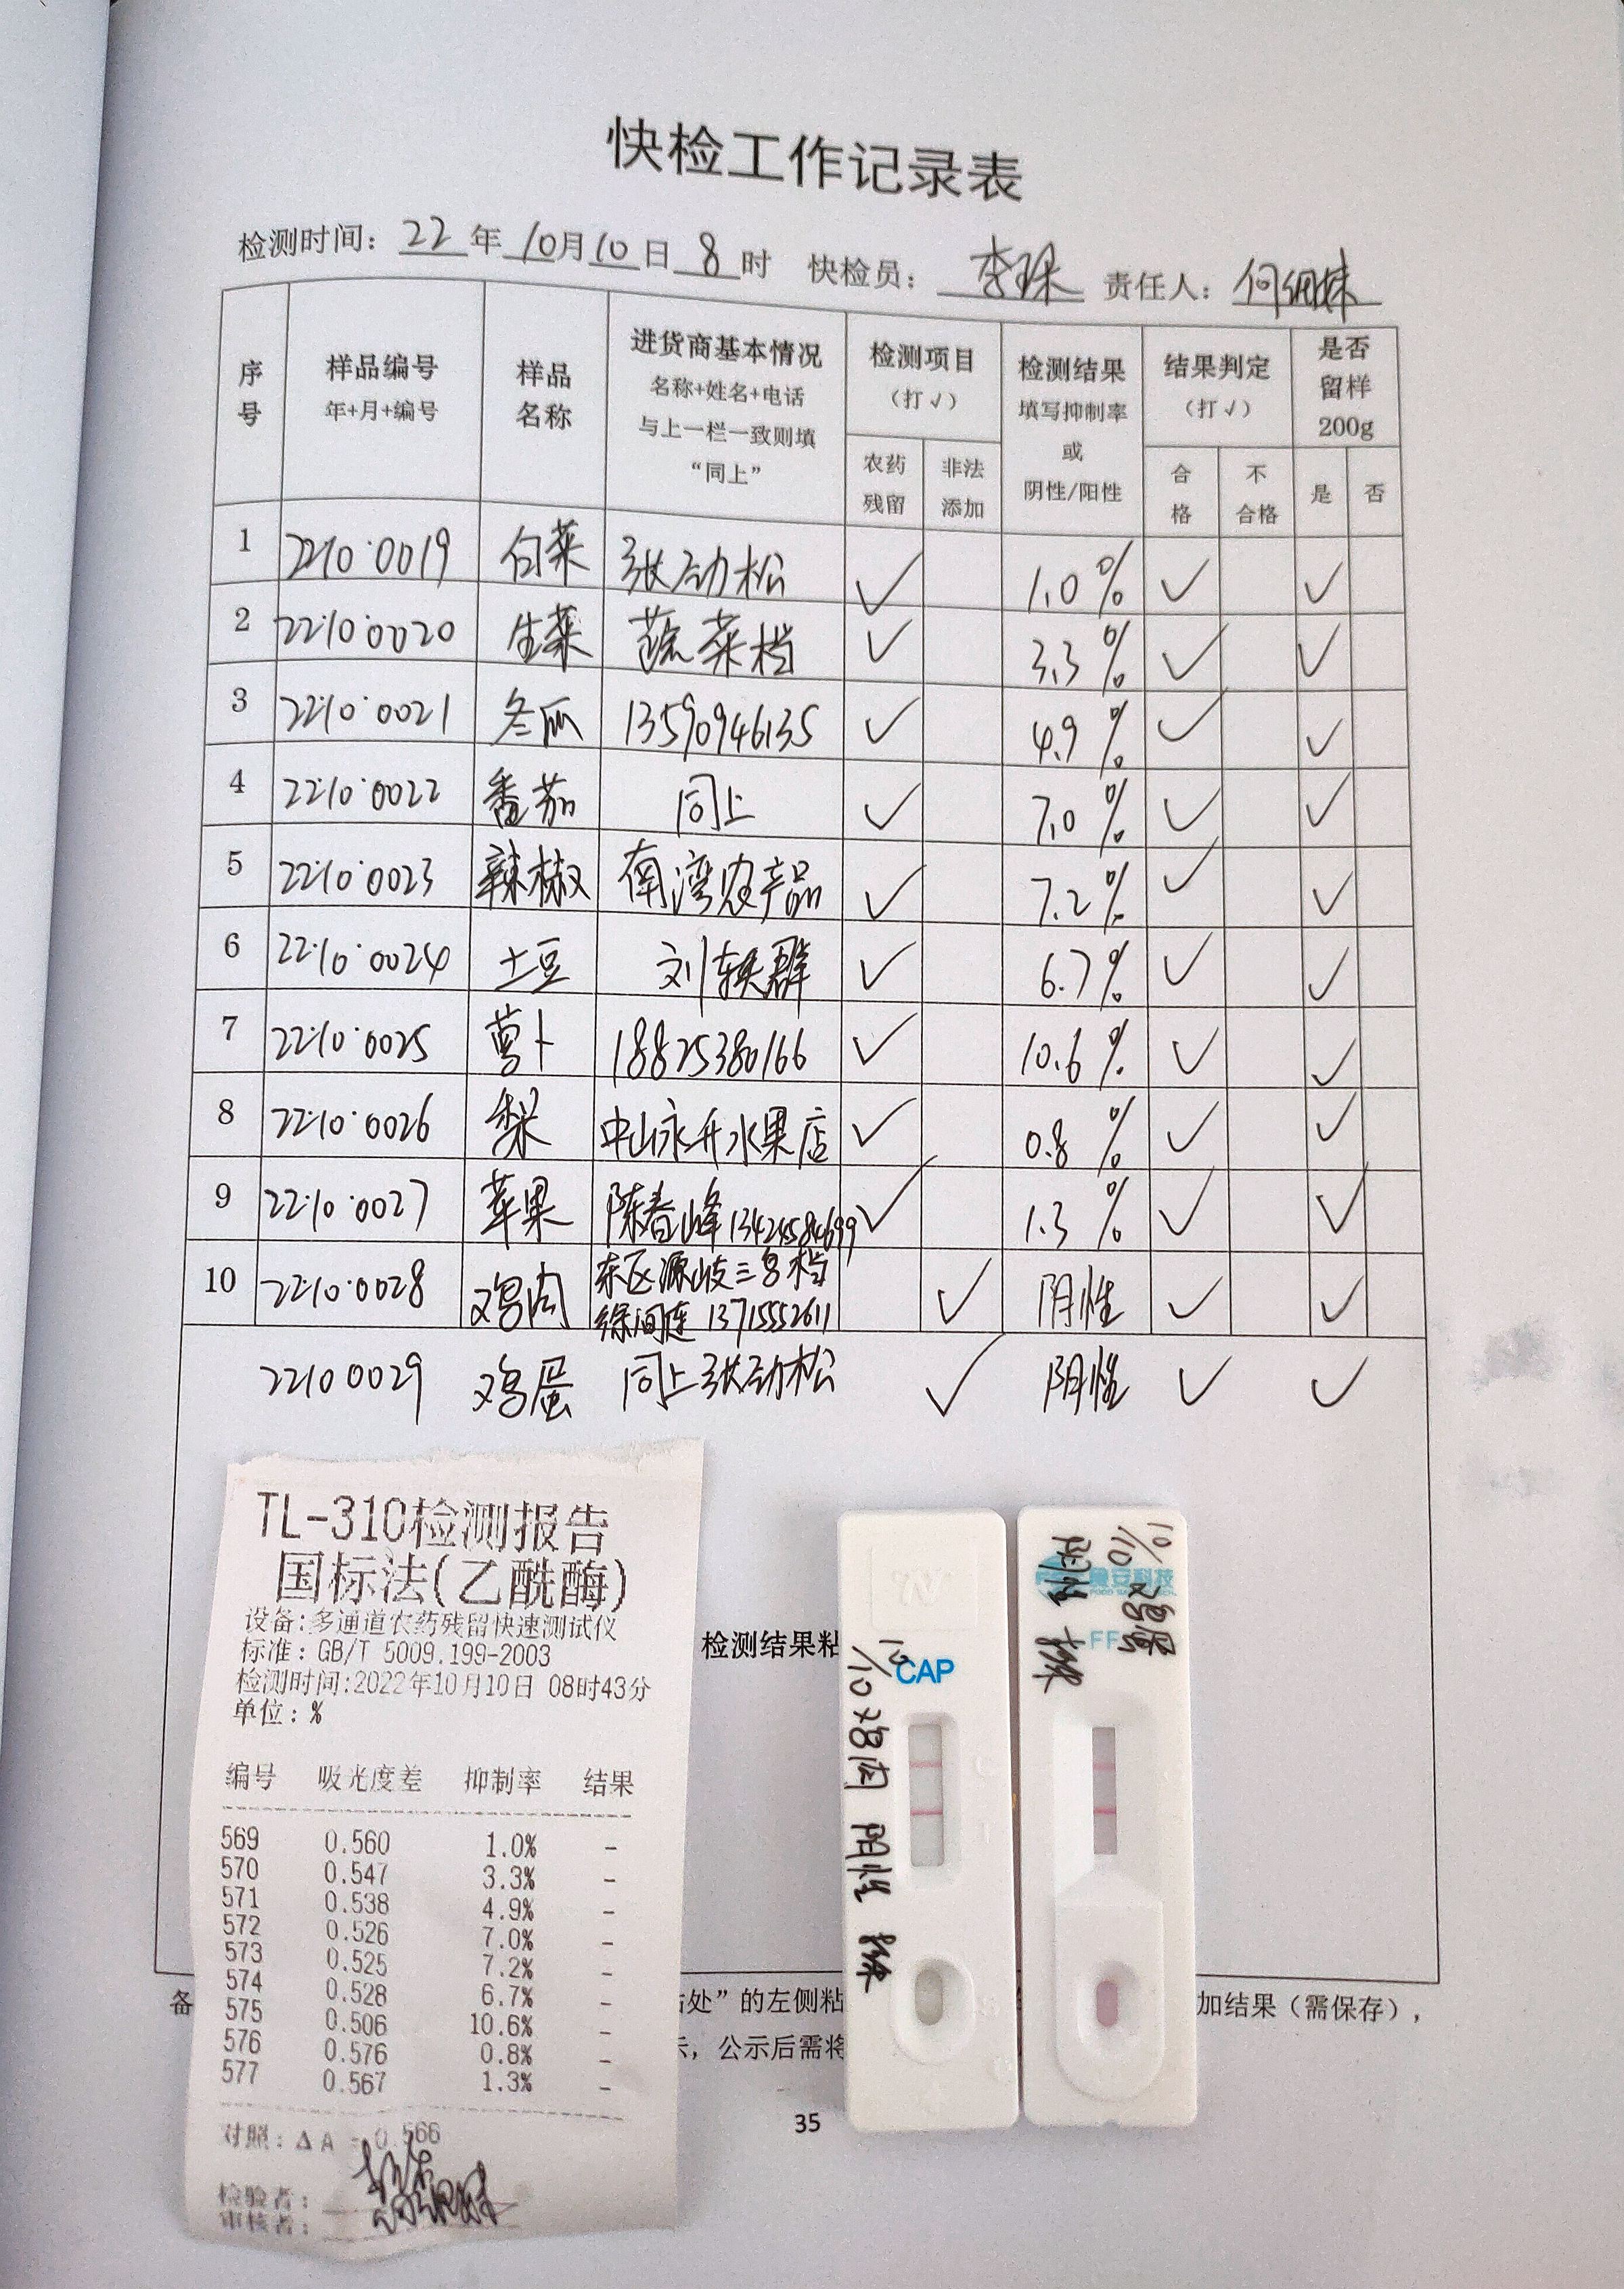 快检工作记录表
检测时间：22年10月10日8时 快检员：李琛 责任人：何细妹
序号 样品编号 年+月+编号 样品名称 进货商基本情况 名称+姓名+电话 与上一栏一致则填“同上” 检测项目（打√） 农药残留 非法添加 检测结果 填写抑制率或阴性/阳性 结果判定（打√） 合格 不合格 是否留样200g 是 否
1 22·10·0019 白菜 张劲松 √ 1.0% √ √
2 22·10·0020 生菜 蔬菜档 √ 3.3% √ √
3 22·10·0021 冬瓜 13590946135 √ 4.9% √ √
4 22·10·0022 番茄 同上 √ 7.0% √ √
5 22·10·0023 辣椒 南湾农产品 √ 7.2% √ √
6 22·10·0024 土豆 刘轶群 √ 6.7% √ √
7 22·10·0025 萝卜 18825380166 √ 10.6% √ √
8 22·10·0026 梨 中山永升水果店 √ 0.8% √ √
9 22·10·0027 苹果 陈春峰 13424584699 √ 1.3% √ √
10 22·10·0028 鸡肉 东区源岐三鸟档 13715552611 √ 阴性 √ √
22100029 鸡蛋 同上张劲松 √ 阴性 √ √
TL-310检测报告
国标法(乙酰酶)
设备:多通道农药残留快速测试仪
标准：GB/T 5009.199-2003
检测时间:2022年10月10日 08时43分
单位：%
编号 吸光度差 抑制率 结果
569 0.560 1.0% -
570 0.547 3.3% -
571 0.538 4.9% -
572 0.526 7.0% -
573 0.525 7.2% -
574 0.528 6.7% -
575 0.506 10.6% -
576 0.576 0.8% -
577 0.567 1.3% -
对照：ΔA = 0.566
检验者：
审核者：
检测结果粘
CAP
10/10 鸡肉 阴性
10/10 鸡蛋
阴性
FF
备
处”的左侧粘
加结果（需保存），
示，公示后需将
35